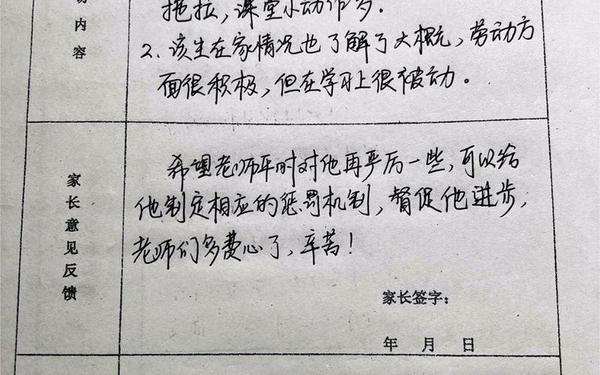 拖拉，课堂小动作多.
内容
2、该生在家情况也了解了大概，劳动方
面很积极，但在学习上很被动。
家长意见反馈
希望老师平时对他再严厉一些，可以给
他制定相应的惩罚机制，督促他进步，
老师们多费心了，辛苦！
家长签字：
年 月 日